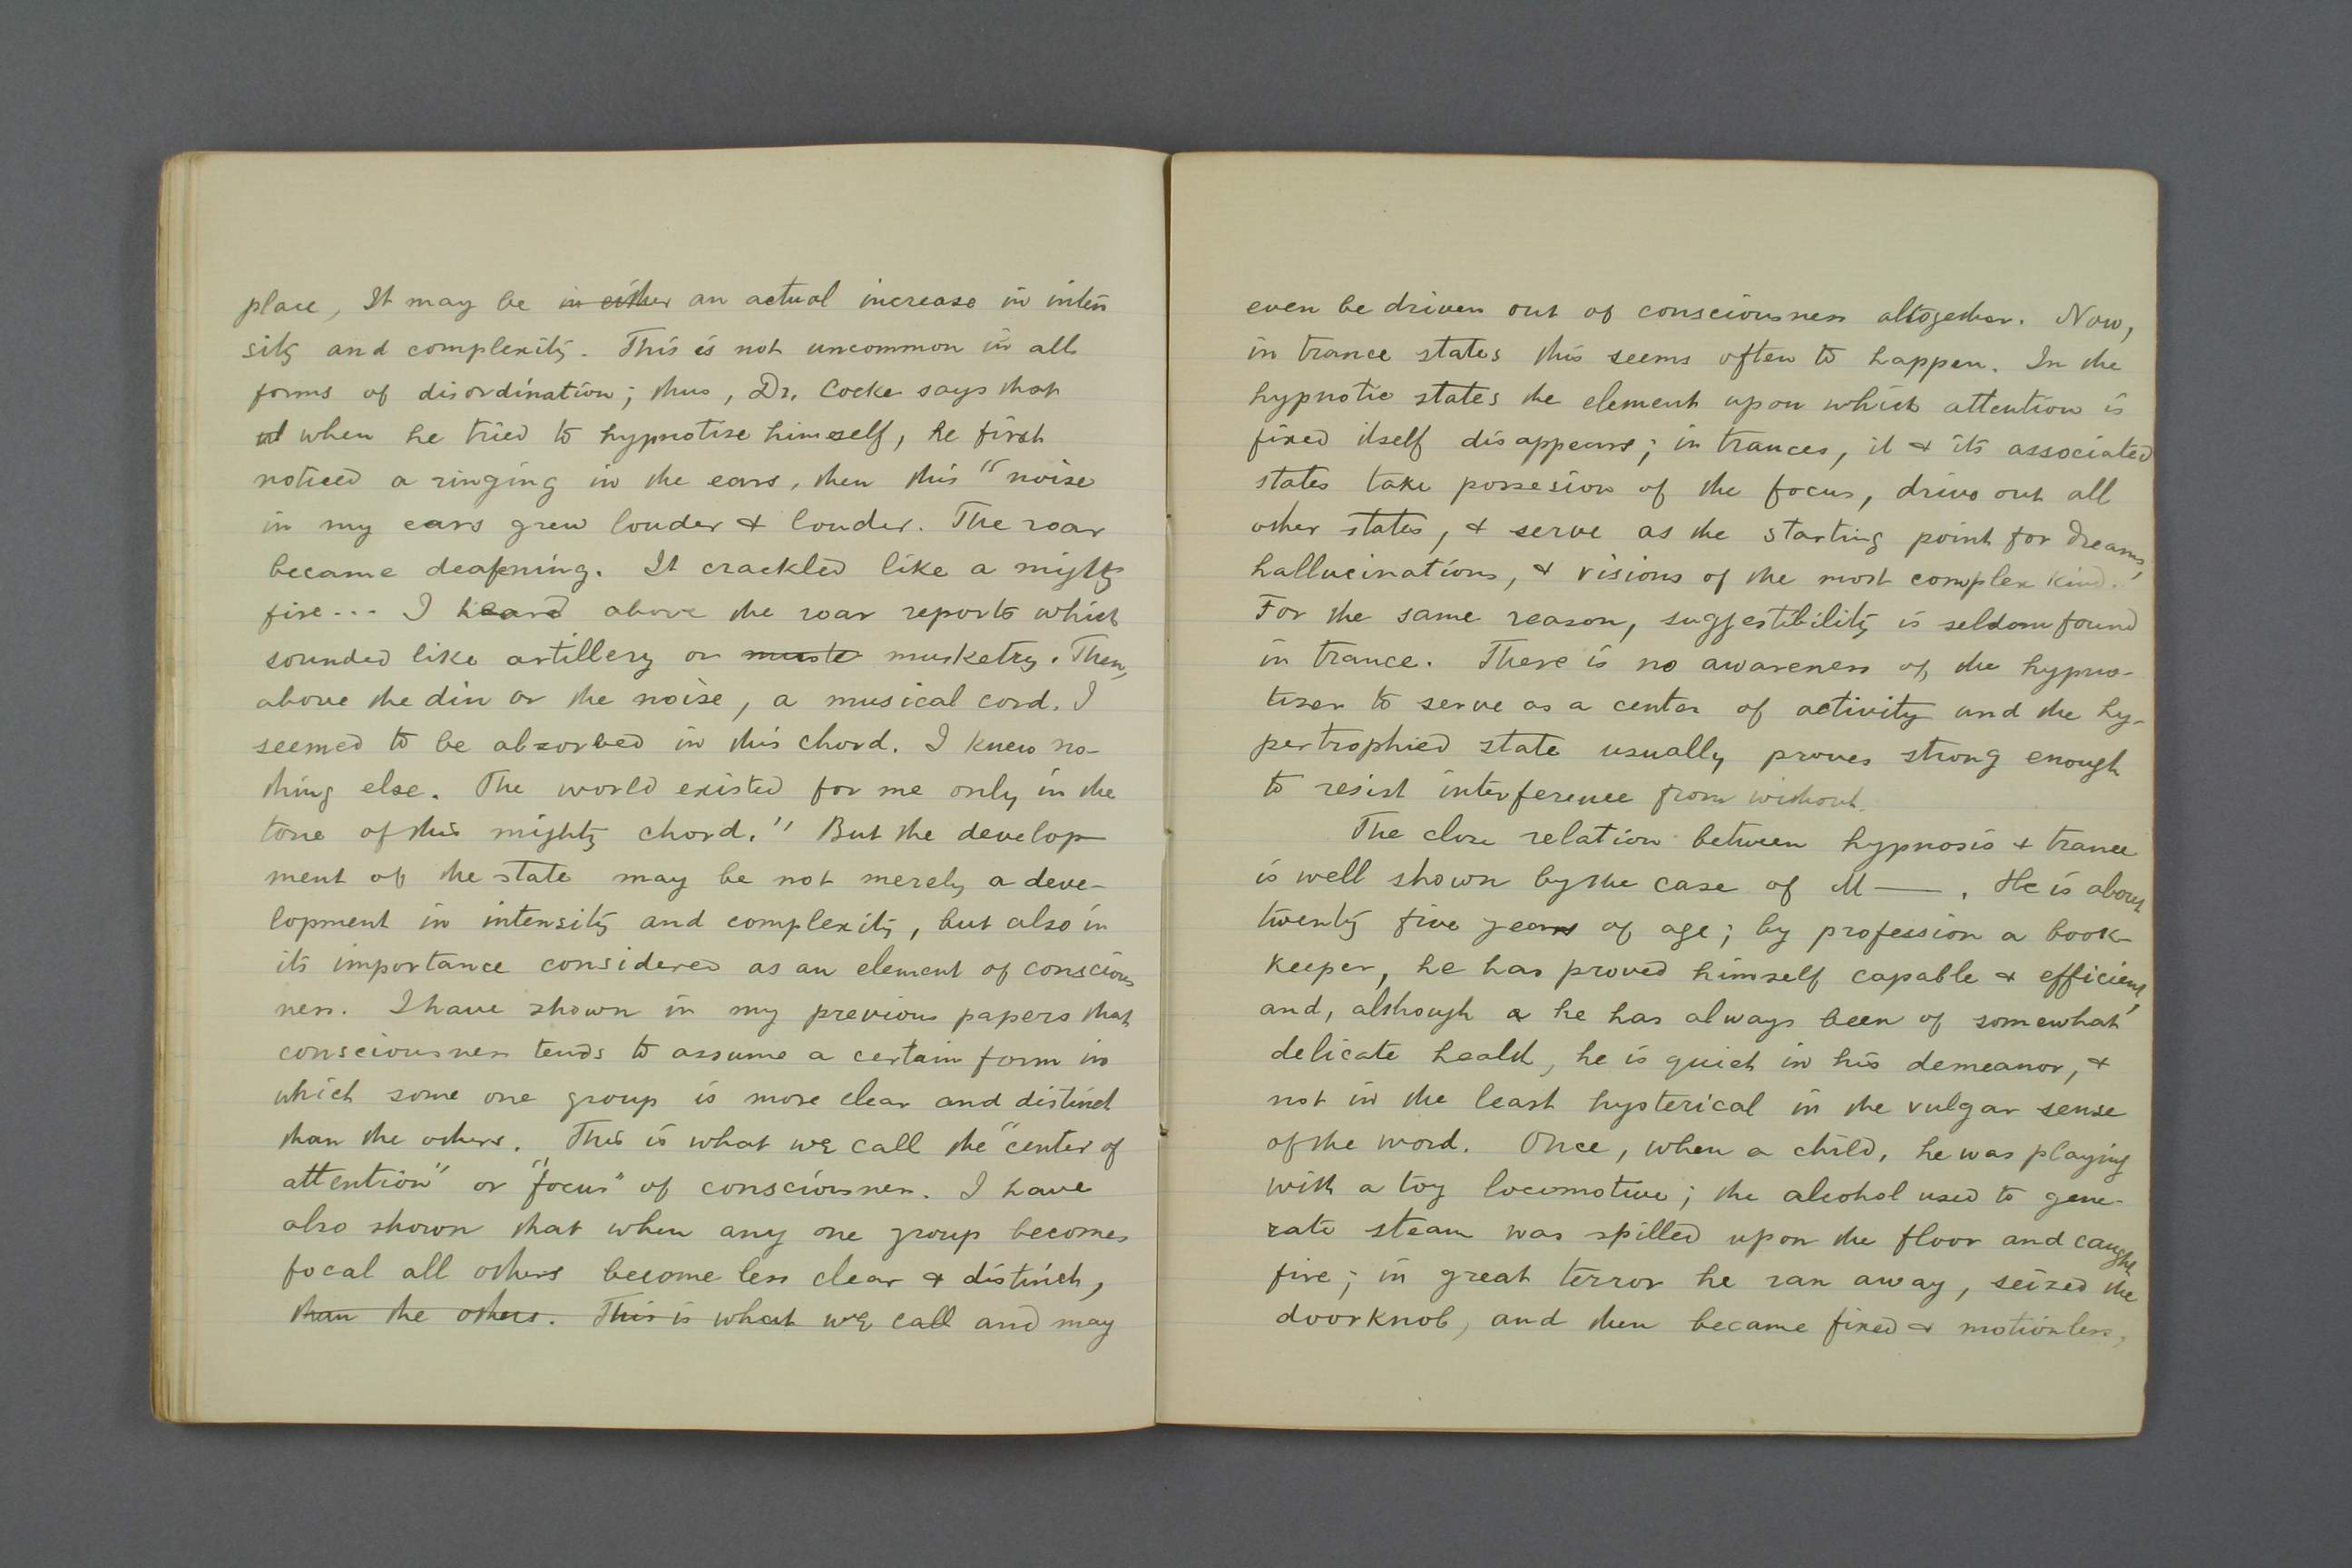 place, It may be in either an actual increase in inten
sity and complexity. This is not uncommon in all
forms of disordination; thus, Dr. Cocke says that
when he tried to hypnotise himself, he first
noticed a ringing in the ears, then this "noise
in my ears grew louder & louder. The roar
became deafening. It crackled like a mighty
fire... I heard above the roar reports which
sounded like artillery or muste musketry. Then,
above the din or the noise, a musical cord. I
seemed to be absorbed in this chord. I knew no-
thing else. The world existed for me only in the
tone of this mighty chord." But the develop
ment of the state may be not merely a deve-
lopment in intensity and complexity, but also in
its importance considered as an element of conscious
ness. I have shown in my previous papers that
consciousness tends to assume a certain form in
which some one group is more clear and distinct
than the others. This is what we call the "center of
attention" or "focus" of consciousness. I have
also shown that when any one group becomes
focal all others become less clear & distinct,
than the others. This is what we call and may
even be driven out of consciousness altogether. Now,
in trance states this seems often to happen. In the
hypnotic states the element upon which attention is
fixed itself disappears; in trances, it & its associated
states take possesion of the focus, drive out all
other states, & serve as the starting point for dreams,
hallucinations, & visions of the most complex kind.
For the same reason, suggestibility is seldom found
in trance. There is no awareness of the hypno-
tiser to serve as a center of activity and the hy-
pertrophied state usually proves strong enough
to resist interference from without.
The close relation between hypnosis & trance
is well shown by the case of M——. He is about
twenty five years of age; by profession a book-
keeper, he has proved himself capable & efficient,
and, although a he has always been of somewhat
delicate health, he is quiet in his demeanor, &
not in the least hysterical in the vulgar sense
of the word. Once, when a child, he was playing
with a toy locomotive; the alcohol used to gene-
rate steam was spilled upon the floor and caught
fire; in great terror he ran away, seized the
doorknob, and then became fixed & motionless,